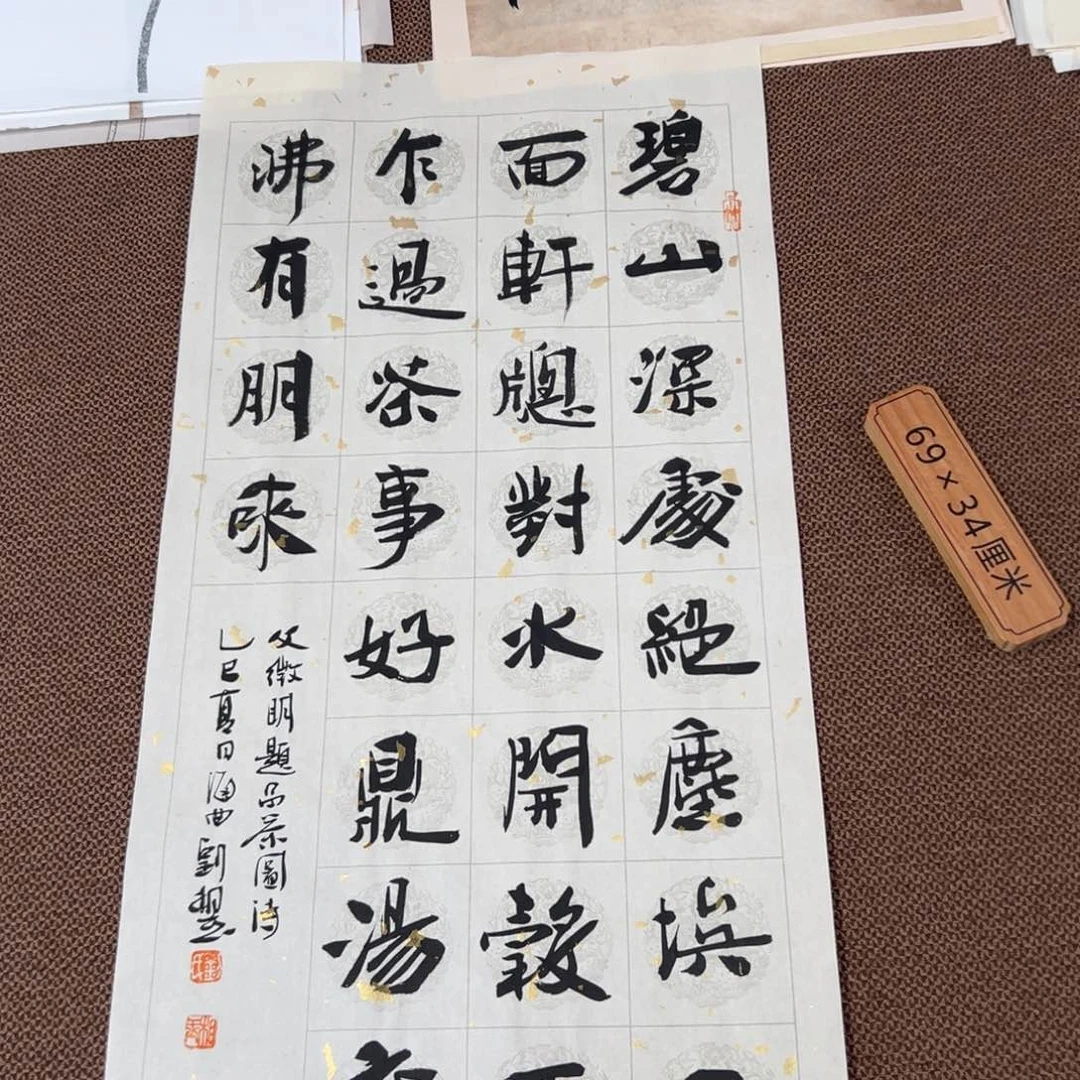 碧山深處絕塵埃
面軒牕對水開穀
乍過茶事好鼎湯
沸有朋來
文徵明題品茶圖詩
乙巳夏日海曲劉
69×34厘米